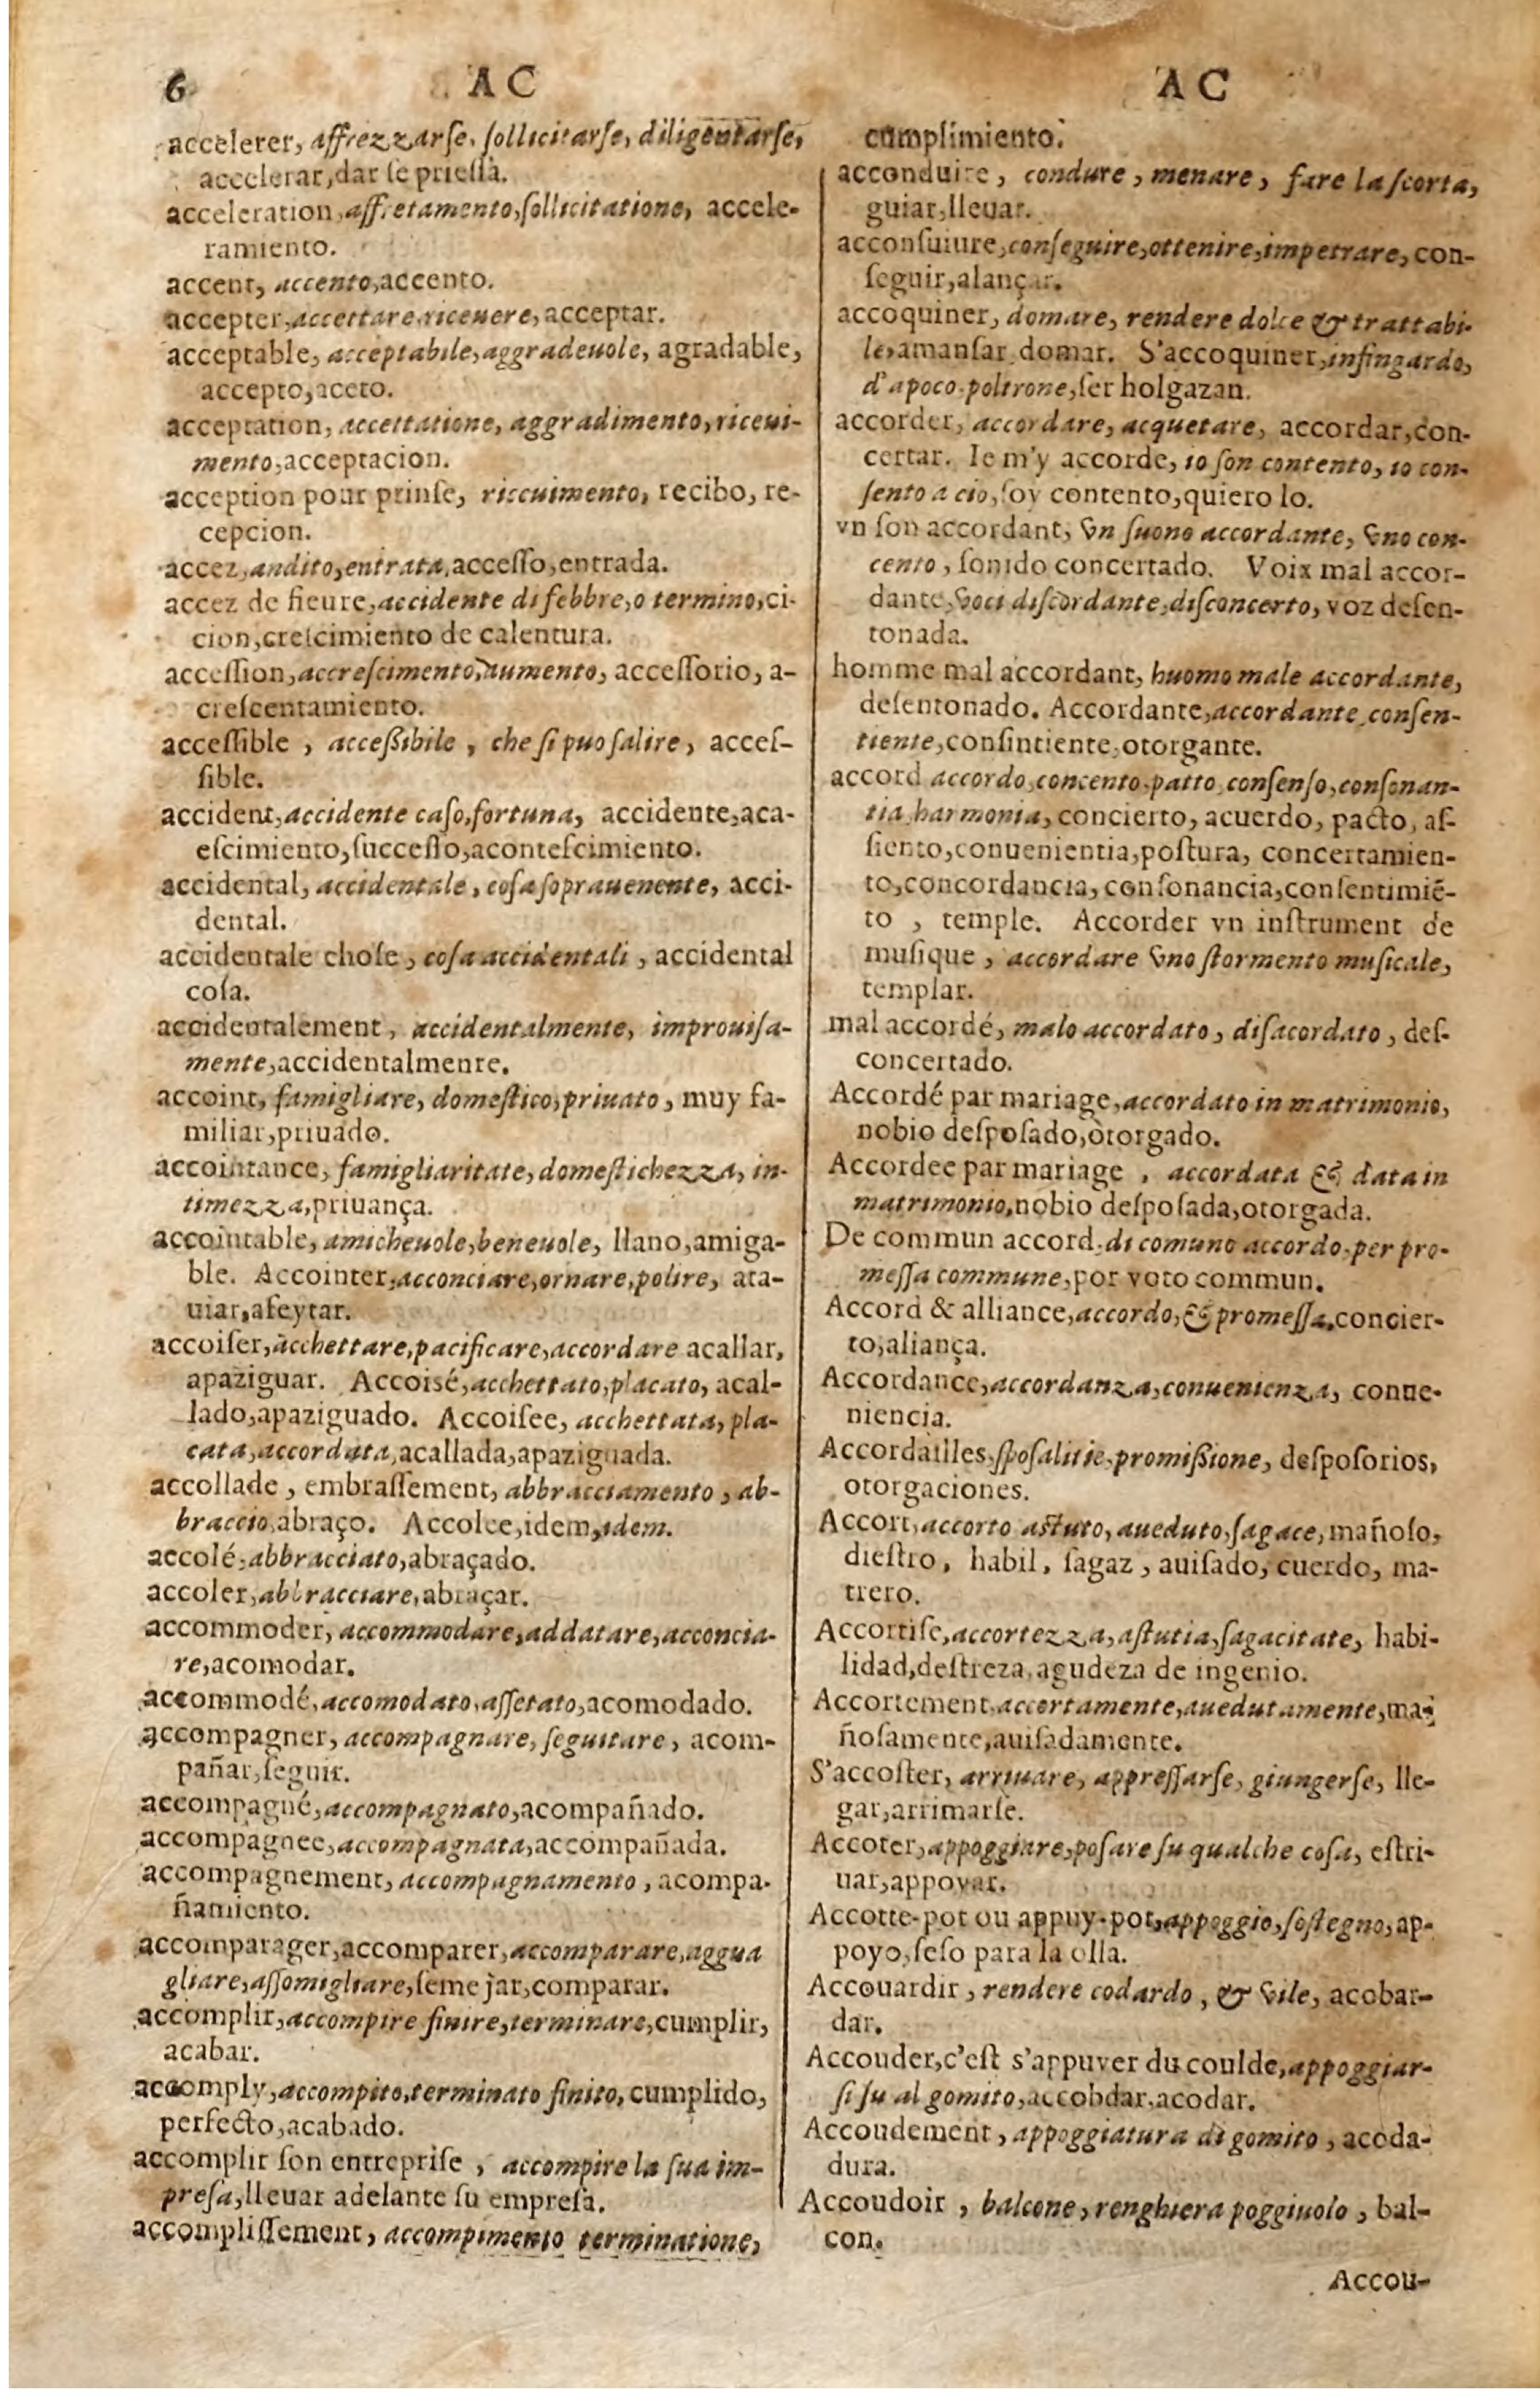 6 AC AC
accelerer, affrezzarſe, ſollicitarſe, diligentarſe,
accelerar, dar ſe prieſſa.
acceleration, affretamento, ſollicitatione, accele-
ramiento.
accent, accento, accento.
accepter, accettare, riceuere, acceptar.
acceptable, acceptabile, aggradeuole, agradable,
accepto, aceto.
acceptation, accettatione, aggradimento, riceui-
mento, acceptacion.
acception pour prinſe, riceuimento, recibo, re-
cepcion.
accez, andito, entrata, acceſſo, entrada.
accez de fieure, accidente di febbre, o termino, ci-
cion, creſcimiento de calentura.
acceſſion, accreſcimento, aumento, acceſſorio, a-
creſcentamiento.
acceſſible, acceßibile, che ſi puo ſalire, acceſ-
ſible.
accident, accidente caſo, fortuna, accidente, aca-
eſcimiento, ſucceſſo, aconteſcimiento.
accidental, accidentale, coſa ſoprauenente, acci-
dental.
accidentale choſe, coſa accidentali, accidental
coſa.
accidentalement, accidentalmente, improuiſa-
mente, accidentalmente.
accoint, famigliare, domeſtico, priuato, muy fa-
miliar, priuado.
accointance, famigliaritate, domeſtichezza, in-
timezza, priuança.
accointable, amicheuole, beneuole, llano, amiga-
ble. Accointer, acconciare, ornare, polire, ata-
uiar, afeytar.
accoiſer, acchettare, pacificare, accordare acallar,
apaziguar. Accoisé, acchettato, placato, acal-
lado, apaziguado. Accoiſee, acchettata, pla-
cata, accordata, acallada, apaziguada.
accollade, embraſſement, abbracciamento, ab-
braccio, abraço. Accolee, idem, idem.
accolé, abbracciato, abraçado.
accoler, abbracciare, abraçar.
accommoder, accommodare, addatare, acconcia-
re, acomodar.
accommodé, accomodato, aſſetato, acomodado.
accompagner, accompagnare, ſeguitare, acom-
pañar, ſeguir.
accompagné, accompagnato, acompañado.
accompagnee, accompagnata, accompañada.
accompagnement, accompagnamento, acompa-
ñamiento.
accomparager, accomparer, accomparare, aggua
gliare, aſſomigliare, ſemejar, comparar.
accomplir, accompire finire, terminare, cumplir,
acabar.
accomply, accompito, terminato finito, cumplido,
perfecto, acabado.
accomplir ſon entrepriſe, accompire la ſua im-
preſa, lleuar adelante ſu empreſa.
accompliſſement, accompimento terminatione,
cumplimiento.
acconduire, condure, menare, fare la ſcorta,
guiar, lleuar.
acconſuiure, conſeguire, ottenire, impetrare, con-
ſeguir, alançar.
accoquiner, domare, rendere dolce & trattabi-
le, amanſar domar. S'accoquiner, infingardo,
d'apoco poltrone, ſer holgazan.
accorder, accordare, acquetare, accordar, con-
certar. Ie m'y accorde, io ſon contento, io con-
ſento a cio, ſoy contento, quiero lo.
vn ſon accordant, vn ſuono accordante, vno con-
cento, ſonido concertado. Voix mal accor-
dante, voci diſcordante, diſconcerto, voz deſen-
tonada.
homme mal accordant, huomo male accordante,
deſentonado. Accordante, accordante, conſen-
tiente, conſintiente, otorgante.
accord accordo, concento, patto, conſenſo, conſonan-
tia, harmonia, concierto, acuerdo, pacto, aſ-
ſiento, conuenientia, poſtura, concertamien-
to, concordancia, conſonancia, conſentimiẽ-
to, temple. Accorder vn inſtrument de
muſique, accordare vno ſtormento muſicale,
templar.
mal accordé, malo accordato, diſacordato, deſ-
concertado.
Accordé par mariage, accordato in matrimonio,
nobio deſpoſado, otorgado.
Accordee par mariage, accordata & data in
matrimonio, nobio deſpoſada, otorgada.
De commun accord, di comuno accordo, per pro-
meſſa commune, por voto commun.
Accord & alliance, accordo, & promeſſa, concier-
to, aliança.
Accordance, accordanza, conuenienza, conue-
niencia.
Accordailles, ſpoſalitie, promißione, deſpoſorios,
otorgaciones.
Accort, accorto aſtuto, aueduto, ſagace, mañoſo,
dieſtro, habil, ſagaz, auiſado, cuerdo, ma-
trero.
Accortiſe, accortezza, aſtutia, ſagacitate, habi-
lidad, deſtreza, agudeza de ingenio.
Accortement, accortamente, auedutamente, ma-
ñoſamente, auiſadamente.
S'accoſter, arriuare, appreſſarſe, giungerſe, lle-
gar, arrimarſe.
Accoter, appoggiare, poſare ſu qualche coſa, eſtri-
uar, appoyar.
Accotte-pot ou appuy-pot, appoggio, ſoſtegno, ap-
poyo, ſeſo para la olla.
Accouardir, rendere codardo, & vile, acobar-
dar.
Accouder, c'eſt s'appuyer du coulde, appoggiar-
ſi ſu al gomito, accobdar, acodar.
Accoudement, appoggiatura di gomito, acoda-
dura.
Accoudoir, balcone, renghiera poggiuolo, bal-
con.
Accou-